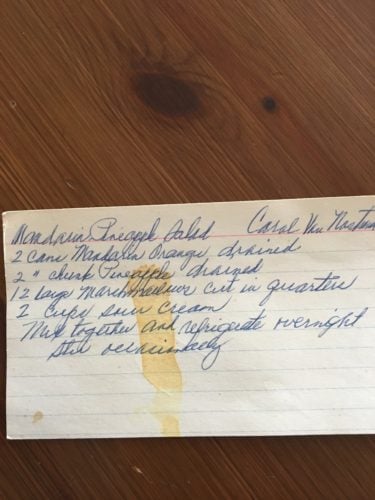 Mandarin Pineapple Salad Carol Van Nostran
2 cans Mandarin Orange, drained
2 " chunk Pineapple drained
12 large Marshmallows cut in quarters
2 Cups sour cream
Mix together and refrigerate overnight
Stir occasionally